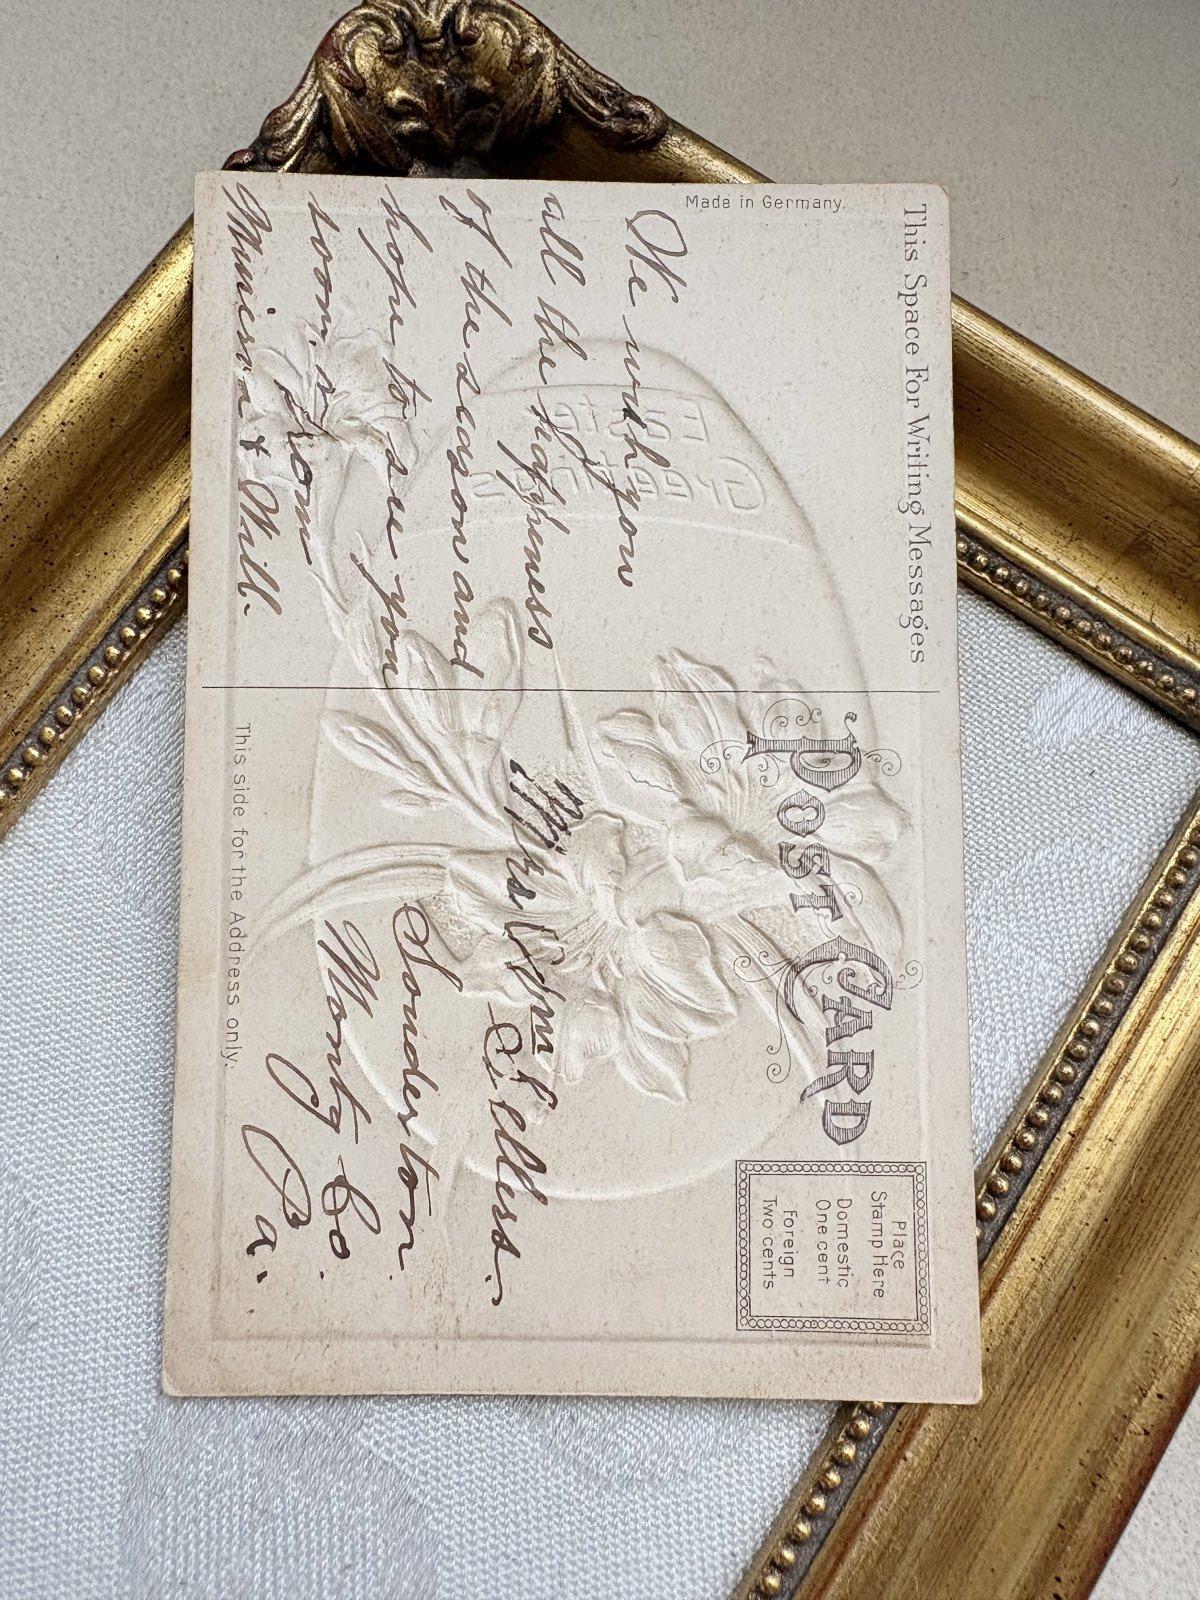 This Space For Writing Messages
Made in Germany.
We wish you
all the happiness
of the season and
hope to see you
soon.
From
& Will.
POST CARD
Place
Stamp Here
Domestic
One cent
Foreign
Two cents
Mrs Wm Sellers.
Souderton.
Montg Co.
Pa.
This side for the Address only.
Easter
Greetings